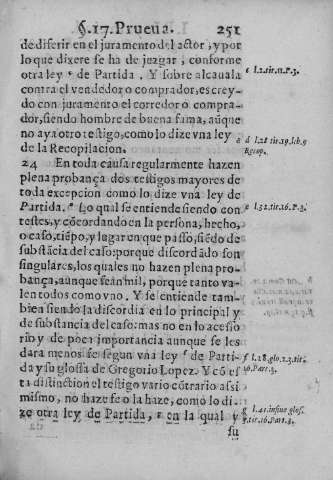 §.17. Prueua. 251
de diferir en el juramento del actor, y por
lo que dixere se ha de juzgar, conforme
otra ley ᶜ de Partida. Y sobre alcauala
c l.2.tit.11.P.3.
contra el vendedor o comprador, es crey-
do con juramento el corredor o compra-
dor, siendo hombre de buena fama, aũque
no aya otro testigo, como lo dize vna ley
d l.28 tit.19.lib.9
de la Recopilacion.
Recop.
24 En toda causa regularmente hazen
plena probança dos testigos mayores de
toda excepcion como lo dize vna ley de
Partida. ᵉ Lo qual se entiende siendo con
e l.32.tit.16.P.3.
testes, y cõcordando en la persona, hecho,
o caso, tiẽpo, y lugar en que passo, siẽdo de
substãcia del caso: porque discordãdo son
singulares, los quales no hazen plena pro-
bança, aunque seãn mil, porque tanto va-
len todos como vno. Y se entiende tam-
bien siendo la discordia en lo principal y
de substancia del caso: mas no en lo acesso
rio y de poca importancia aunque se les
dara menos fe segun vna ley ᶠ de Parti-
f l.28.glo.2.3.tit.
da y su glossa de Gregorio Lopez. Y cõ es
16.Part.3.
ta distinction el testigo vario cõtrario assi
mismo, no haze fe o la haze, como lo di-
ze otra ley de Partida, ᵍ en la qual y
g l.41.infine glos.
3.tit.16.Part.3.
su